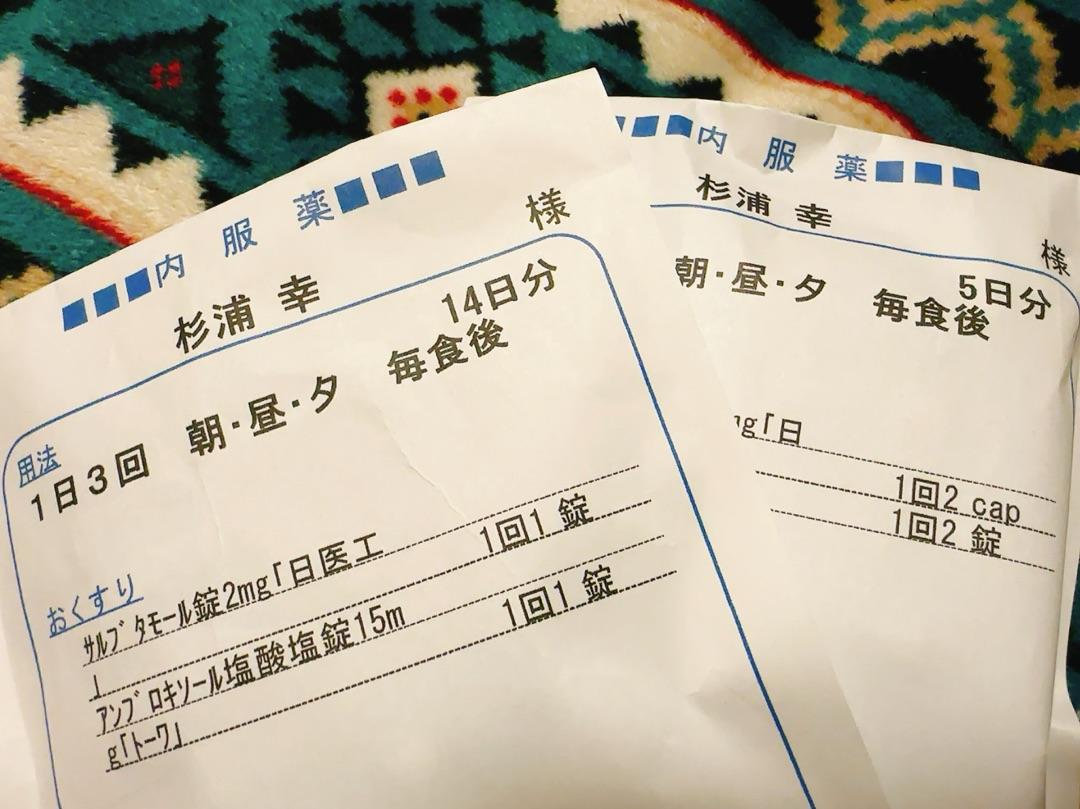 ■■■内 服 薬■■■
杉浦 幸 様
14日分
用法
1日3回 朝・昼・夕 毎食後
おくすり
ｻﾙﾌﾞﾀﾓｰﾙ錠2mg「日医工 1回1 錠
」
ｱﾝﾌﾞﾛｷｿｰﾙ塩酸塩錠15m 1回1 錠
g「ﾄｰﾜ」
■■■内 服 薬■■■
杉浦 幸 様
5日分
朝・昼・夕 毎食後
mg「日
1回2 cap
1回2 錠